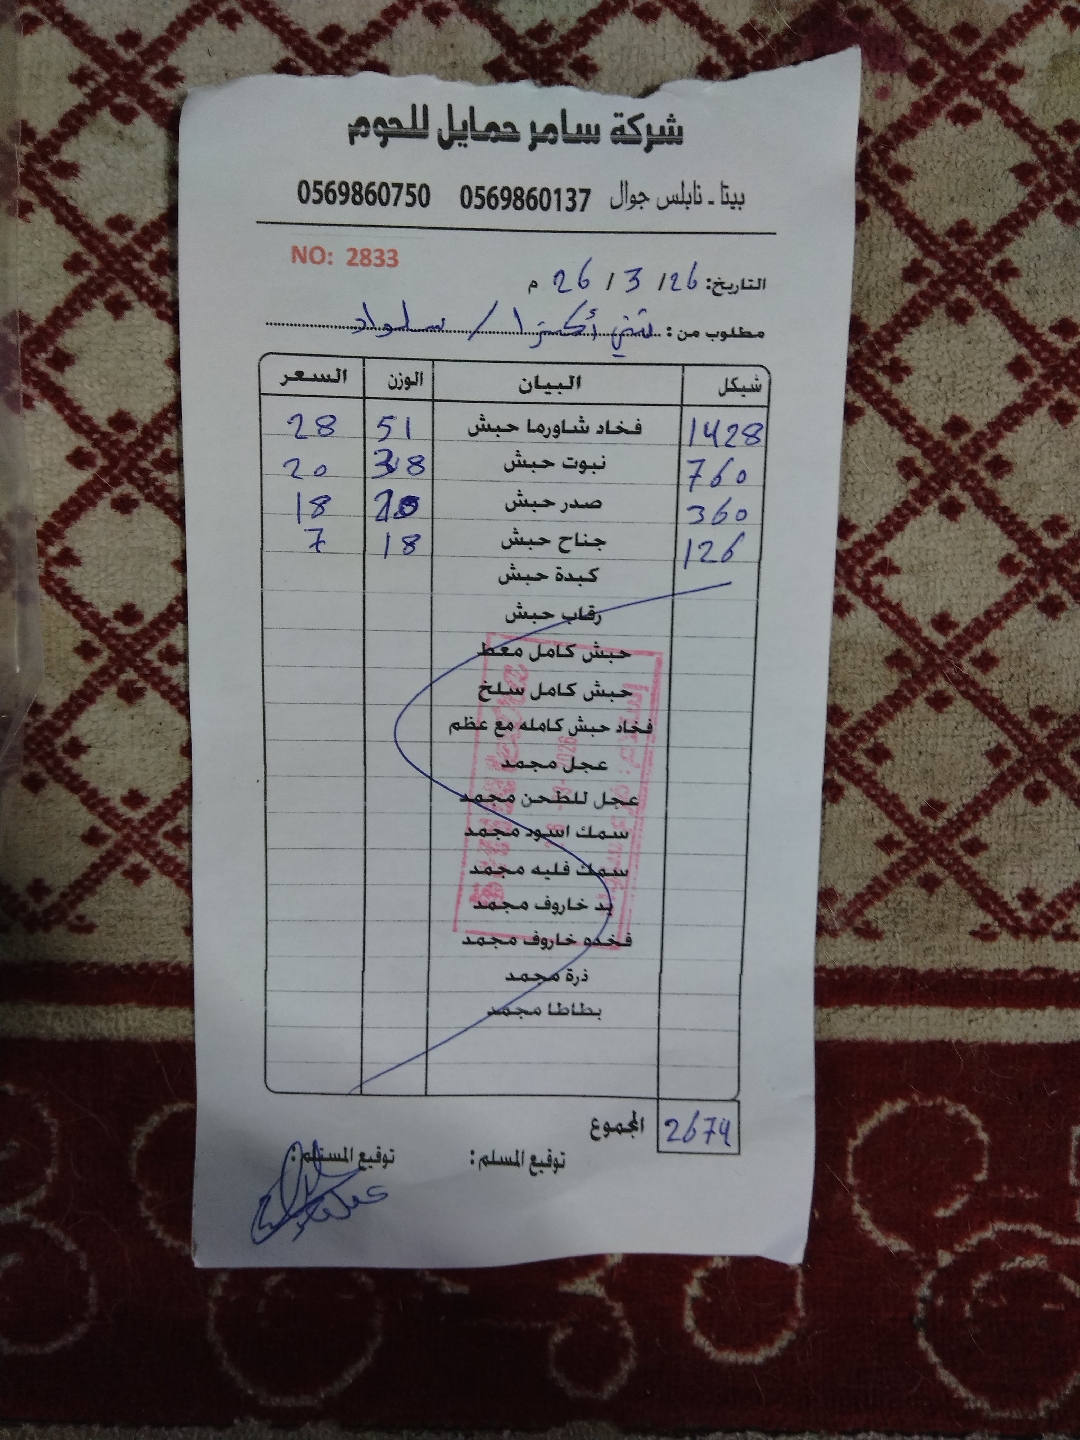 شركة سامر حمايل للحوم
بيتا - نابلس جوال 0569860137 0569860750
NO: 2833
التاريخ: 26 / 3 / 26 م
مطلوب من : أكسترا / سلواد
شيكل البيان الوزن السعر
1428 فخاد شاورما حبش 51 28
760 نبوت حبش 38 20
360 صدر حبش 20 18
126 جناح حبش 18 7
كبدة حبش
رقاب حبش
حبش كامل معط
حبش كامل سلخ
فخاد حبش كامله مع عظم
عجل مجمد
عجل للطحن مجمد
سمك اسود مجمد
سمك فليه مجمد
يد خاروف مجمد
فخده خاروف مجمد
ذرة مجمد
بطاطا مجمد
المجموع 2674
توقيع المسلم : توقيع المستلم :